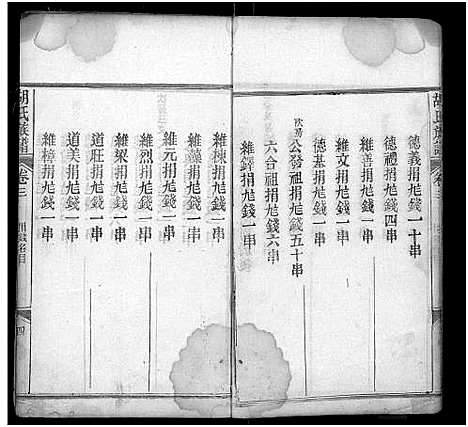 胡氏族譜 卷三
德義捐尨錢一十串
德禮捐尨錢四串
維善捐尨錢一串
維文捐尨錢一串
德基捐尨錢一串
次房
公發祖捐尨錢五十串
六合祖捐尨錢六串
維鐸捐尨錢一串
維棟捐尨錢一串
維藻捐尨錢一串
維元捐尨錢一串
維烈捐尨錢一串
維梁捐尨錢一串
道旺捐尨錢一串
道美捐尨錢一串
維樟捐尨錢一串
胡氏族譜 卷三 四